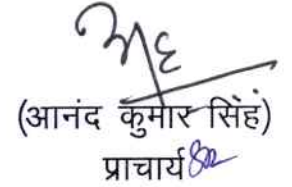 (आनंद कुमार सिंह)
प्राचार्य